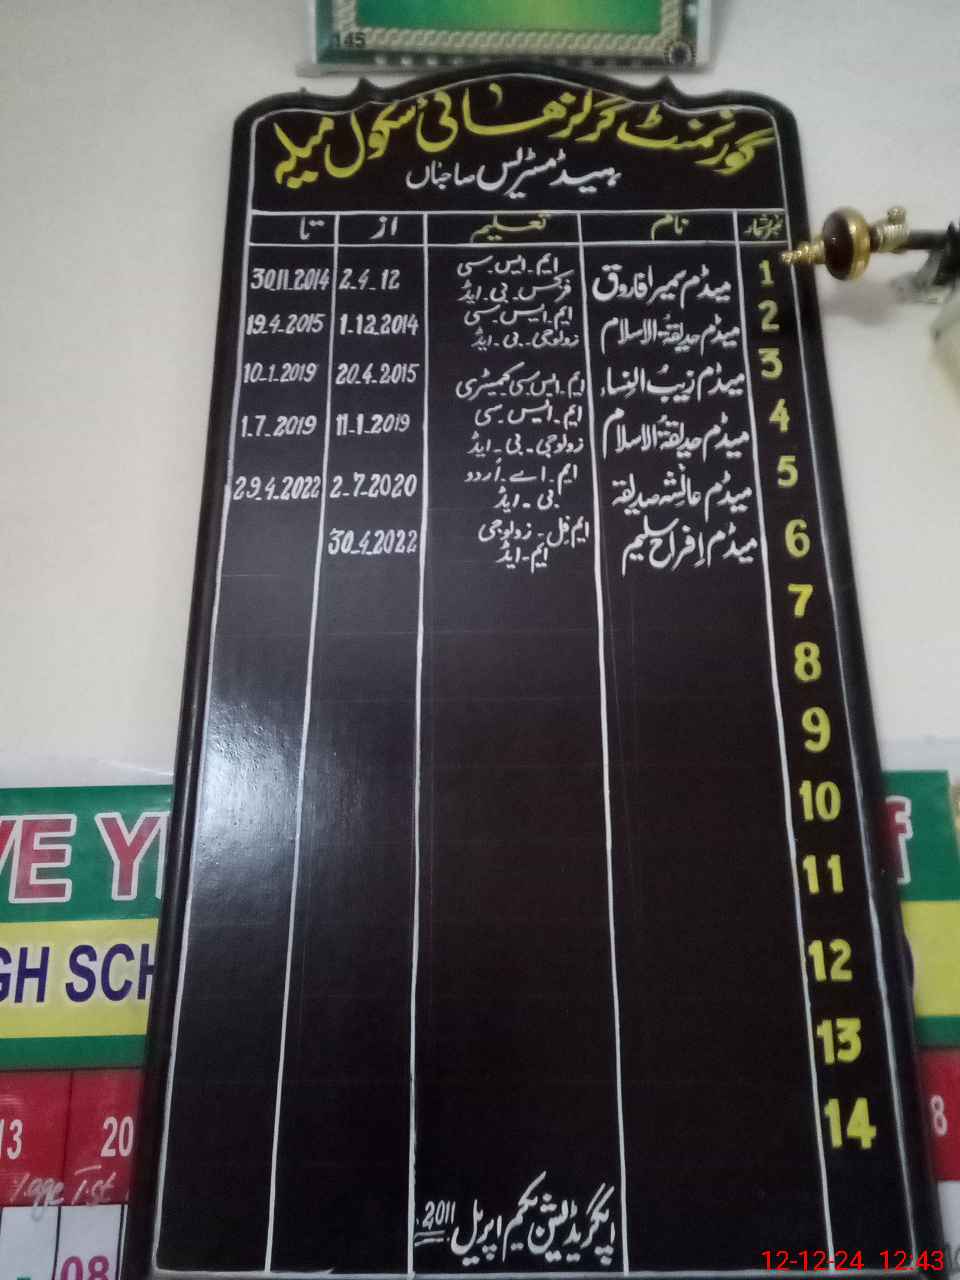 145
گورنمنٹ گرلز ھائی سکول میلہ
ہیڈمسٹریس صاحباں
نمبرشمار نام تعلیم از تا
1 میڈم سمیرا فاروق ایم۔ایس۔سی فزکس۔بی۔ایڈ 2-4-12 30.11.2014
2 میڈم حدیقۃ الاسلام ایم۔ایس۔سی زولوجی۔بی۔ایڈ 1-12-2014 19-4-2015
3 میڈم زیبُ النِساء ایم۔ایس سی کیمسٹری 20-4-2015 10-1-2019
4 میڈم حدیقۃ الاسلام ایم۔ایس سی زولوجی۔بی۔ایڈ 11-1-2019 1-7-2019
5 میڈم عائشہ صدیقہ ایم۔اے۔اُردو بی۔ایڈ 2-7-2020 29-4-2022
6 میڈم اِفراح سلیم ایم فِل۔زولوجی ایم۔ایڈ 30-4-2022
7
8
9
10
11
12
13
14
اپگریڈیشن یکم اپریل 2011
VE Y
f
GH SCH
13 20
8
08
12-12-24 12:43